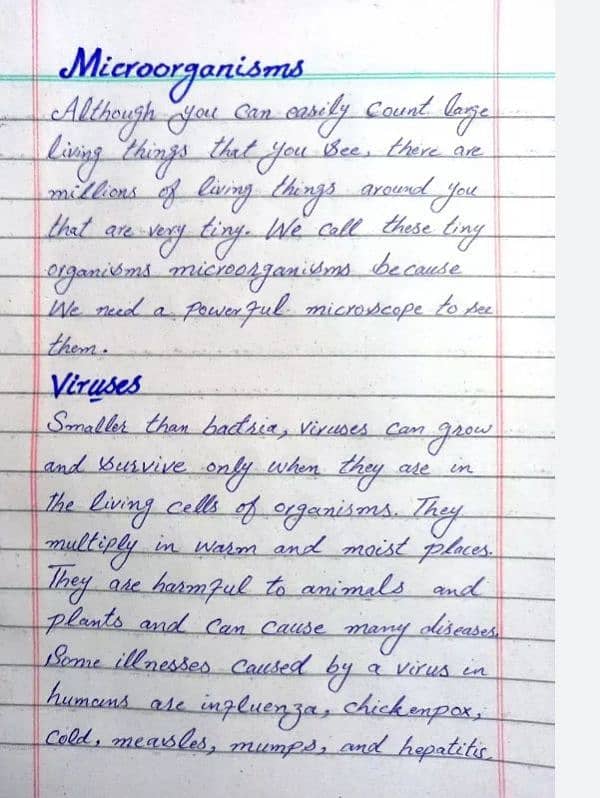 Microorganisms
Although you can easily count large
living things that you see, there are
millions of living things around you
that are very tiny. We call these tiny
organisms microorganisms because
We need a powerful microscope to see
them.
Viruses
Smaller than bactria, viruses can grow
and survive only when they are in
the living cells of organisms. They
multiply in warm and moist places.
They are harmful to animals and
plants and can cause many diseases.
Some illnesses caused by a virus in
humans are influenza, chickenpox,
cold, measles, mumps, and hepatitis.